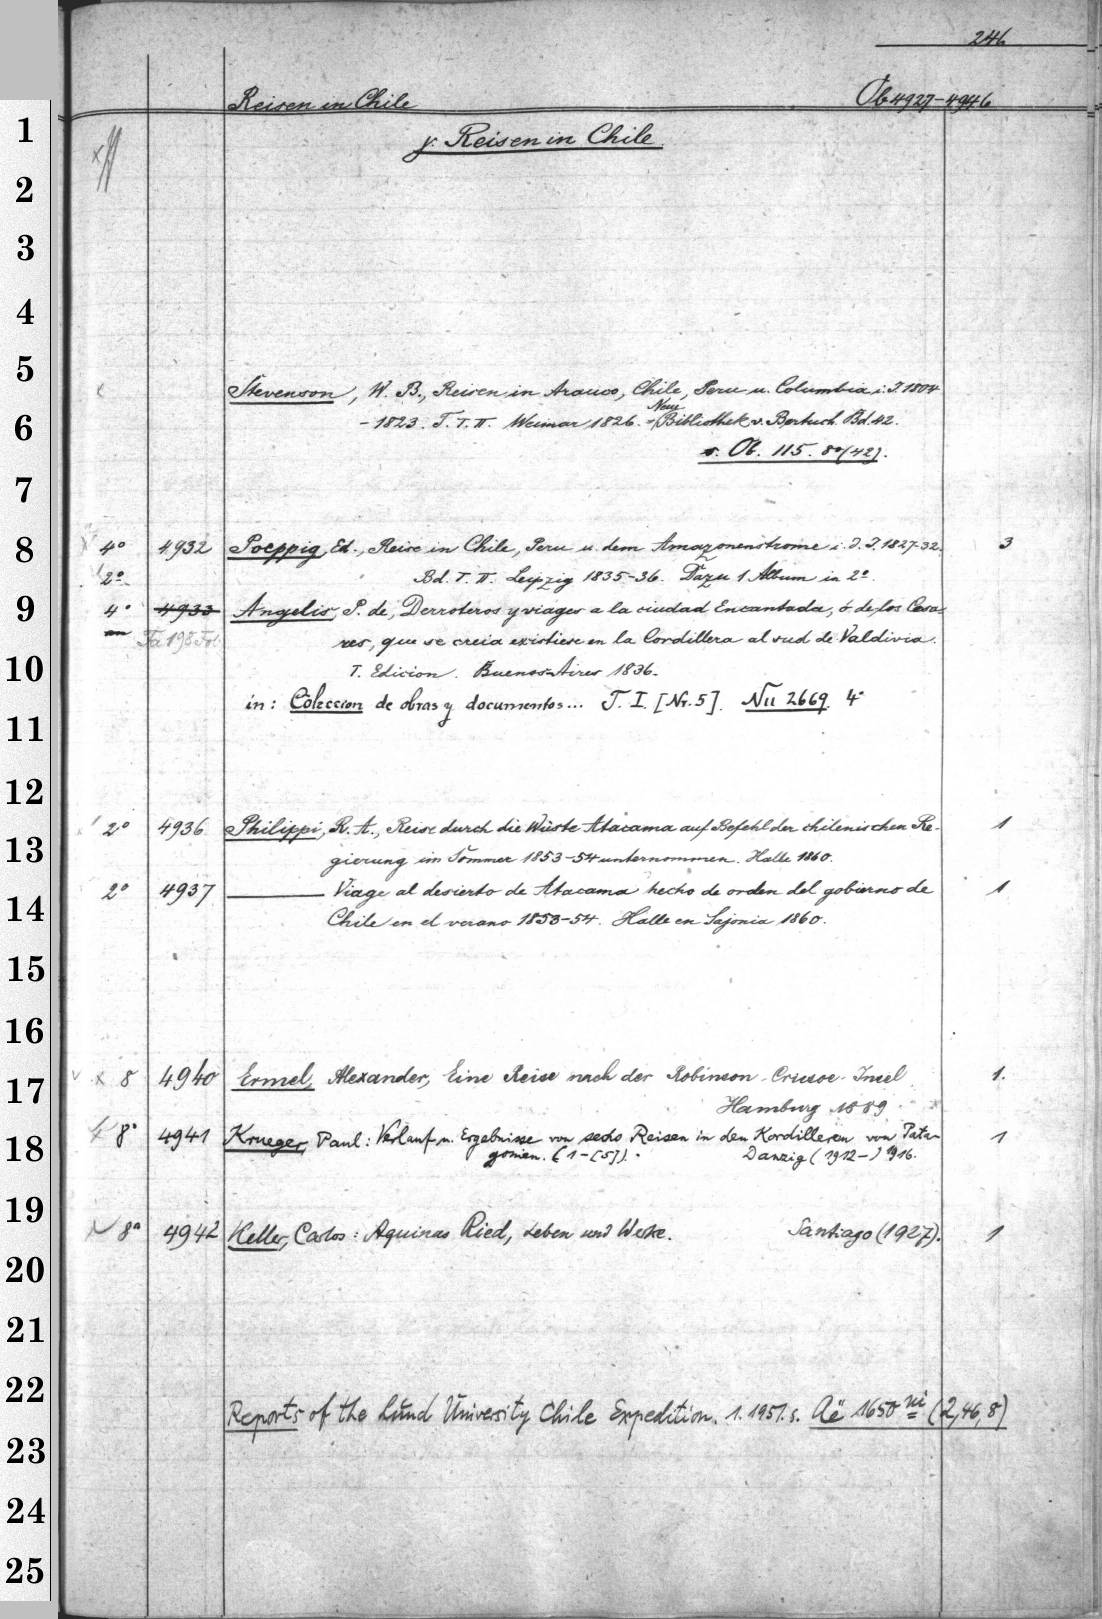 246
Reisen in Chile Ob 4927-4946
γ. Reisen in Chile.
Stevenson, W. B., Reisen in Arauco, Chile, Peru u. Columbia i. J. 1804
-1823. T. I. II. Weimar 1826. = Neue Bibliothek v. Bertuch. Bd. 42.
s. Ob. 115. 8º (42).
4º 4932 Poeppig, Ed., Reise in Chile, Peru u. dem Amazonenstrome i. d. J. 1827-32. 3
2º Bd. I. II. Leipzig 1835-36. Dazu 1 Album in 2º.
4º 4933 Angelis, P. de, Derroteros y viages a la ciudad Encantada, ó de los Cesa-
an res, que se creia existiese en la Cordillera al sud de Valdivia.
I. Edicion. Buenos-Aires 1836.
in: Coleccion de obras y documentos... T. I. [Nr. 5]. Nii 2669. 4º
2º 4936. Philippi, R. A., Reise durch die Wüste Atacama auf Befehl der chilenischen Re- 1
gierung im Sommer 1853-54 unternommen. Halle 1860.
2º 4937 ——— Viage al desierto de Atacama hecho de orden del gobierno de 1
Chile en el verano 1853-54. Halle en Sajonia 1860.
x 8 4940 Ermel, Alexander, Eine Reise nach der Robinson-Crusoe-Insel 1.
Hamburg 1889
8º 4941 Krueger, Paul: Verlauf u. Ergebnisse von sechs Reisen in den Kordilleren von Pata- 1
gonien. (1-[5]). Danzig (1912-) 1916.
8º 4942 Keller, Carlos: Aquinas Ried, Leben und Werke. Santiago (1927). 1
Reports of the Lund University Chile Expedition. 1. 1951. s. Aë 1650 ni (2,46,8)
1
2
3
4
5
6
7
8
9
10
11
12
13
14
15
16
17
18
19
20
21
22
23
24
25